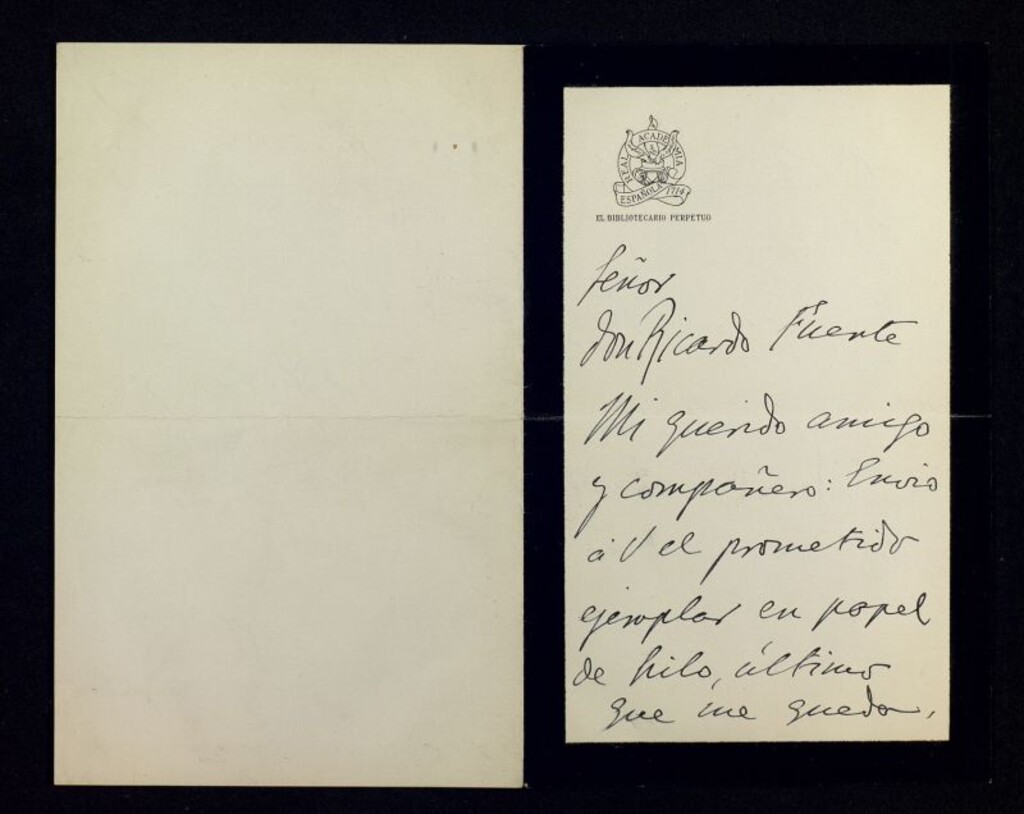 REAL ACADEMIA
ESPAÑOLA 1714
EL BIBLIOTECARIO PERPETUO
Señor
don Ricardo Fuente
Mi querido amigo
y compañero: Envio
á V el prometido
ejemplar en papel
de hilo, último
que me queda,